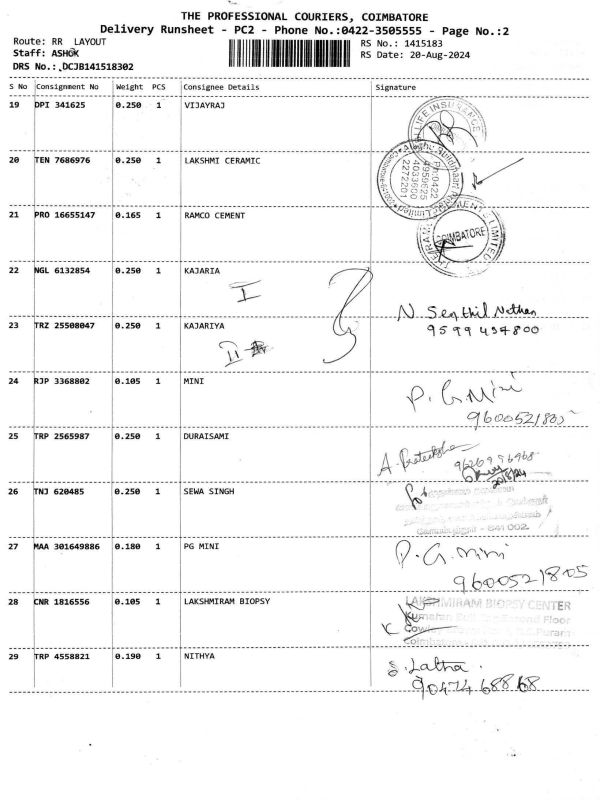 THE PROFESSIONAL COURIERS, COIMBATORE
Delivery Runsheet - PC2 - Phone No.:0422-3505555 - Page No.:2
Route: RR LAYOUT
RS No.: 1415183
Staff: ASHOK
RS Date: 20-Aug-2024
DRS No.: DCJB141518302
S No Consignment No Weight PCS Consignee Details Signature
19 DPI 341625 0.250 1 VIJAYRAJ
LIFE INSURANCE
20 TEN 7686976 0.250 1 LAKSHMI CERAMIC
PH:0422
4959625
4033600
2272201
21 PRO 16655147 0.165 1 RAMCO CEMENT
COIMBATORE
22 NGL 6132854 0.250 1 KAJARIA
I
N. Senthil Nathan
9599 494800
23 TRZ 25508047 0.250 1 KAJARIYA
II
24 RJP 3368802 0.105 1 MINI
P. G. Mini
9600521805
25 TRP 2565987 0.250 1 DURAISAMI
9626996968
20/8/24
26 TNJ 620485 0.250 1 SEWA SINGH
641 002
27 MAA 301649886 0.180 1 PG MINI
P. G. Mini
9600521805
28 CNR 1816556 0.105 1 LAKSHMIRAM BIOPSY
LAKSHMIRAM BIOPSY CENTER
29 TRP 4558821 0.190 1 NITHYA
S. Latha.
90474 68868